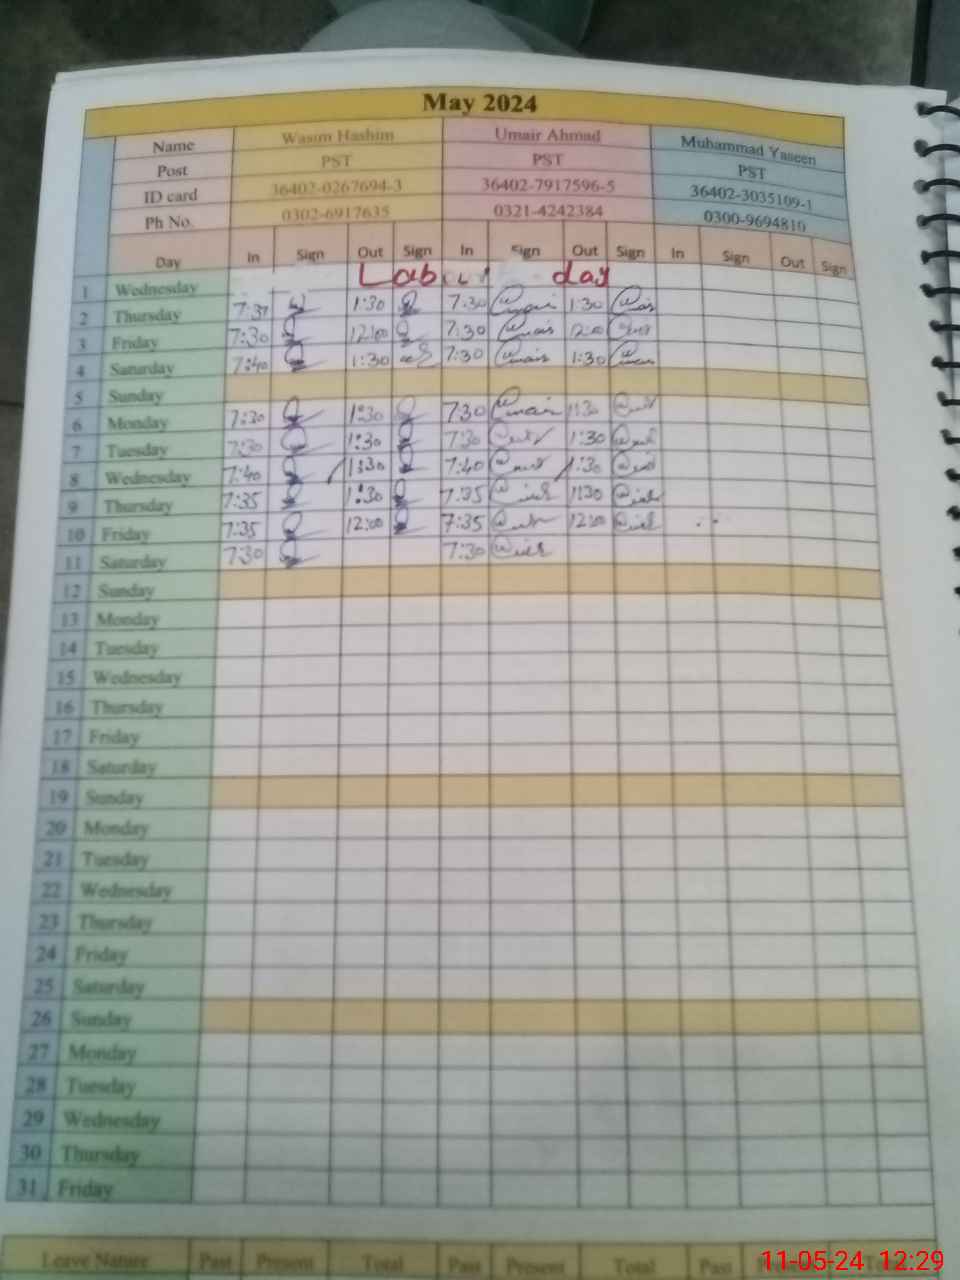 May 2024
Name Wasim Hashim Umair Ahmad Muhammad Yaseen
Post PST PST PST
ID card 36402-0267694-3 36402-7917596-5 36402-3035109-1
Ph No. 0302-6917635 0321-4242384 0300-9694810
Day In Sign Out Sign In Sign Out Sign In Sign Out Sign
1 Wednesday Labour day
2 Thursday 7:31 1:30 7:30 1:30
3 Friday 7:30 12:00 7:30 12:00
4 Saturday 7:40 1:30 7:30 1:30
5 Sunday
6 Monday 7:30 1:30 7:30 1:30
7 Tuesday 7:30 1:30 7:30 1:30
8 Wednesday 7:40 1:30 7:40 1:30
9 Thursday 7:35 1:30 7:35 1:30
10 Friday 7:35 12:00 7:35 12:00
11 Saturday 7:30 7:30
12 Sunday
13 Monday
14 Tuesday
15 Wednesday
16 Thursday
17 Friday
18 Saturday
19 Sunday
20 Monday
21 Tuesday
22 Wednesday
23 Thursday
24 Friday
25 Saturday
26 Sunday
27 Monday
28 Tuesday
29 Wednesday
30 Thursday
31 Friday
Leave Nature Past Present Total Past Present Total Past
11-05-24 12:29